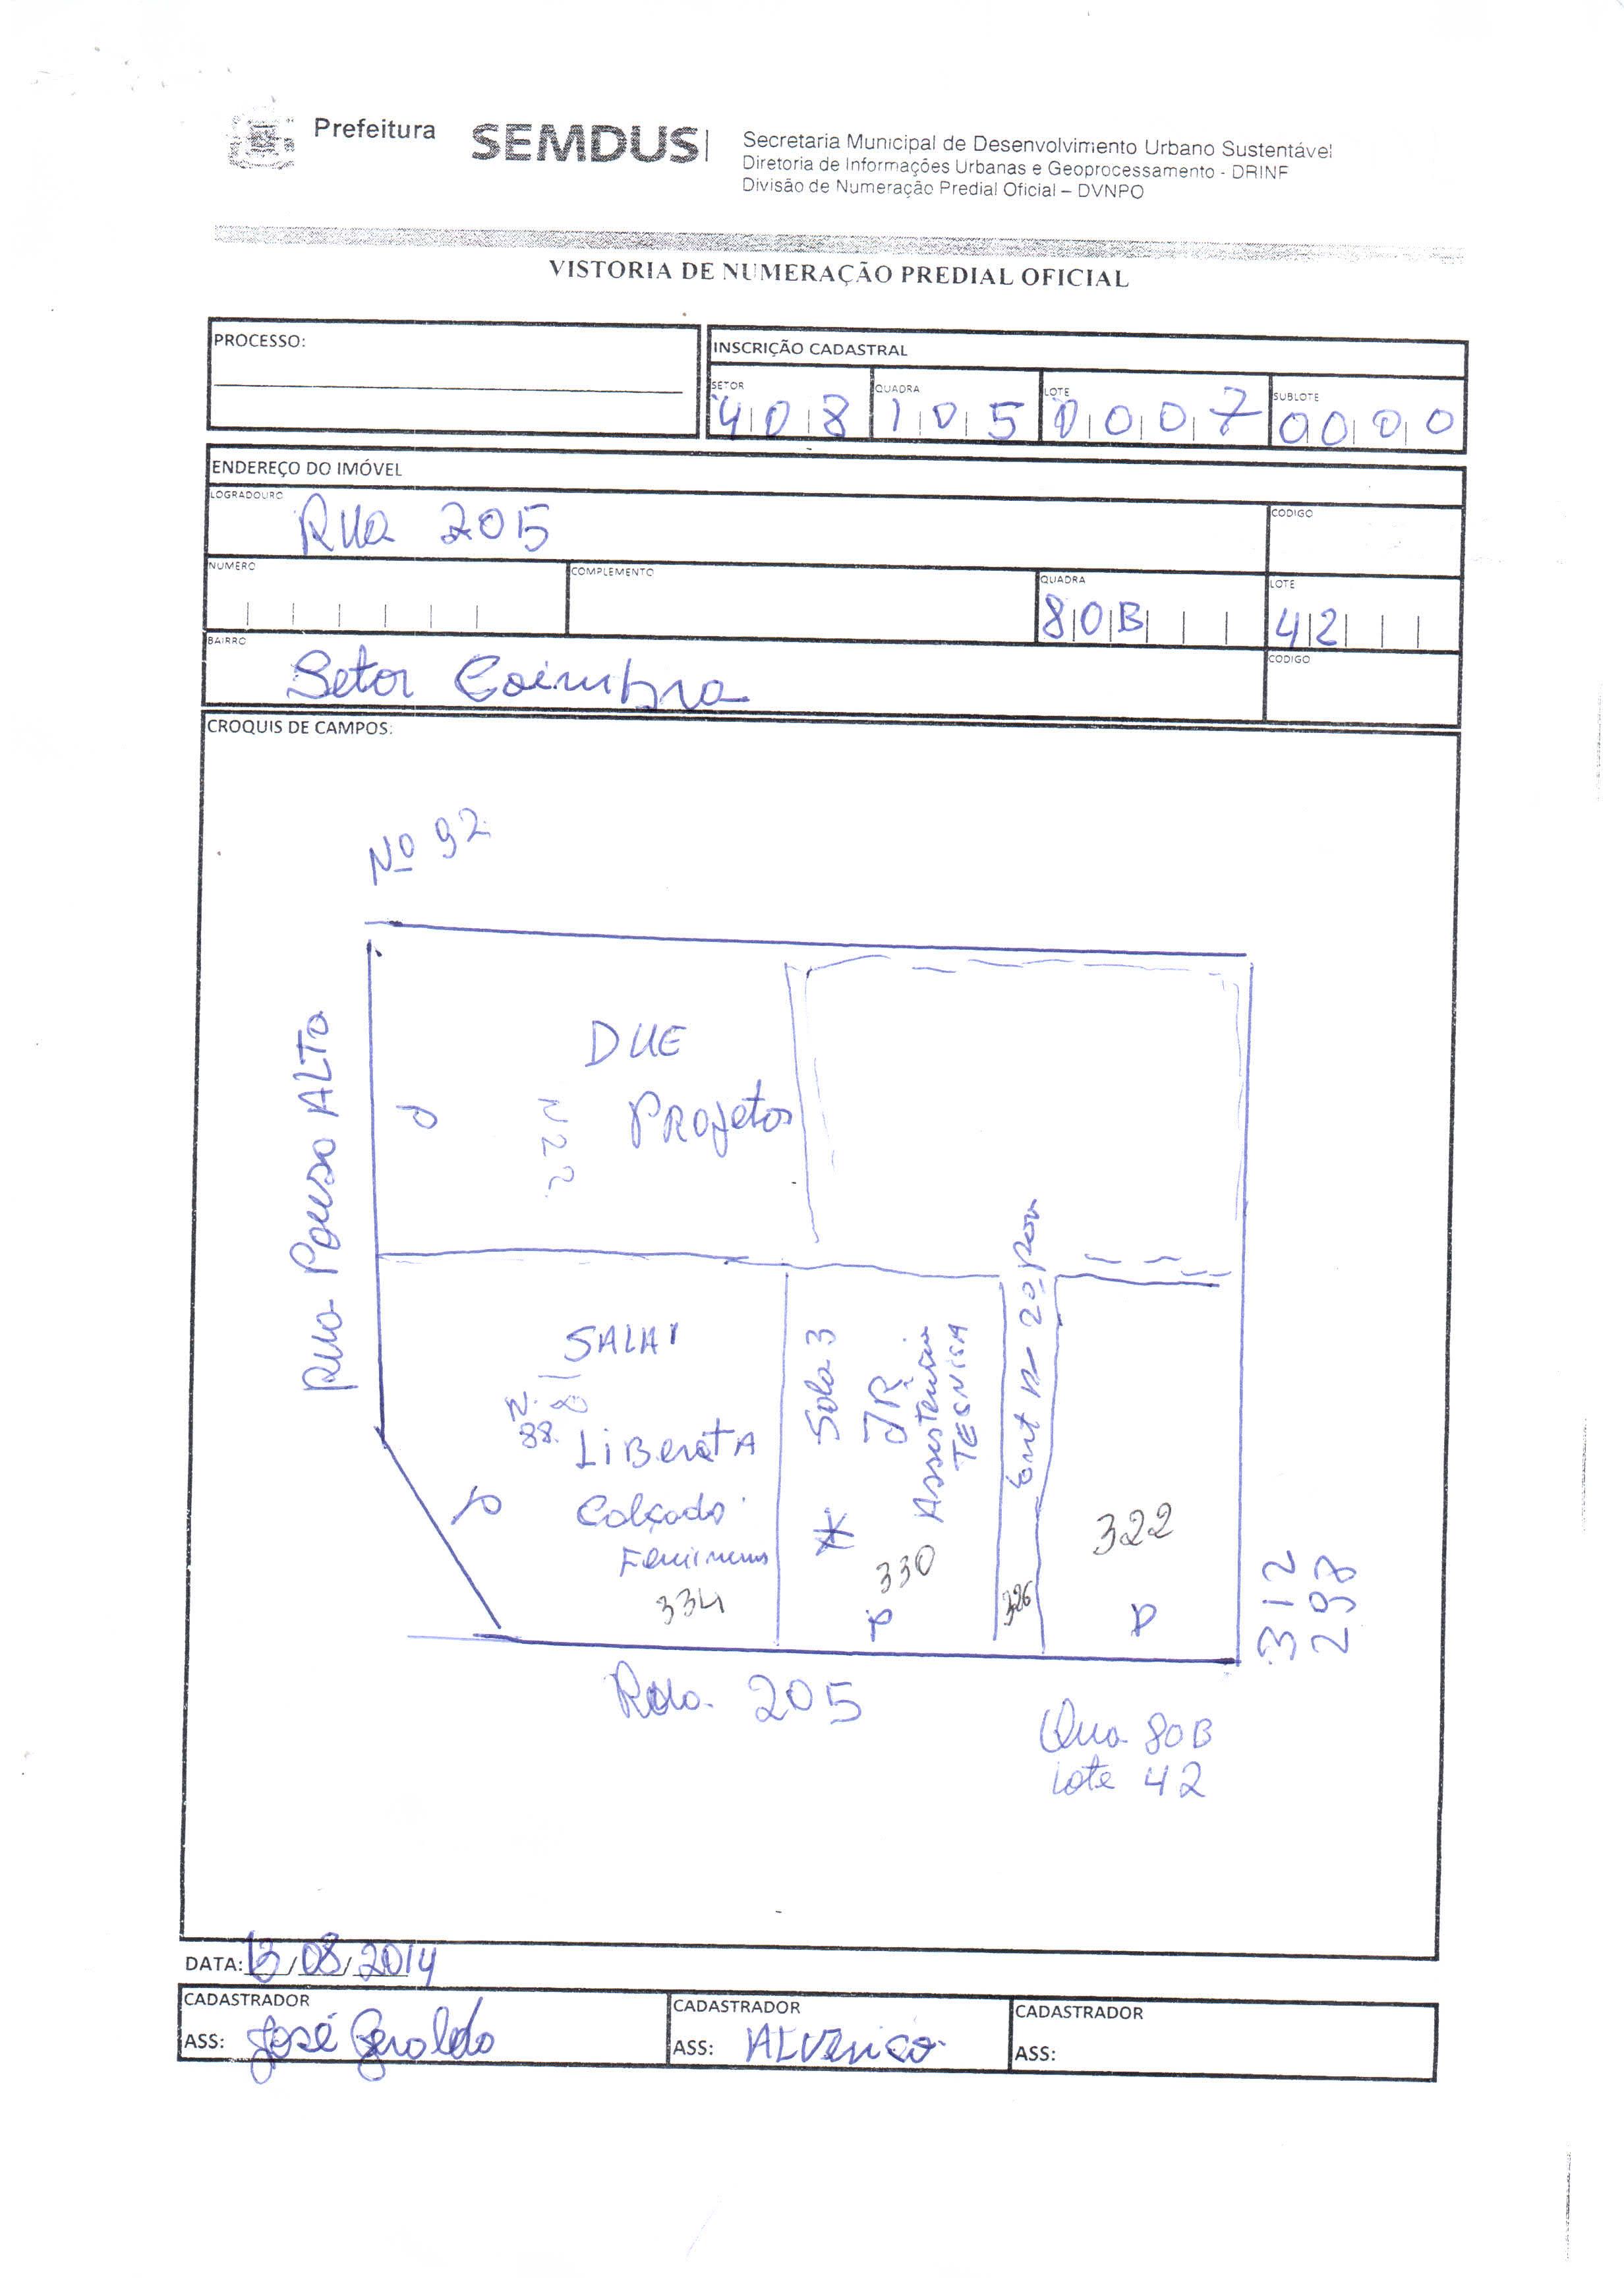 Prefeitura SEMDUS
Secretaria Municipal de Desenvolvimento Urbano Sustentável
Diretoria de Informações Urbanas e Geoprocessamento - DRINF
Divisão de Numeração Predial Oficial – DVNPO
VISTORIA DE NUMERAÇÃO PREDIAL OFICIAL
PROCESSO:
INSCRIÇÃO CADASTRAL
SETOR QUADRA LOTE SUBLOTE
408 105 0007 0000
ENDEREÇO DO IMÓVEL
LOGRADOURO CODIGO
Rua 205
NUMERO COMPLEMENTO QUADRA LOTE
80B 42
BAIRRO CODIGO
Setor Coimbra
CROQUIS DE CAMPOS:
Nº 92
Rua Pouso ALTO
DUE
PROJetos
P
N 22
SALA 1
N.
88.
LiBeratA
Calçado
Feminino
334
P
Sala 3
JR
Assistencia
TECNICA
330
P
Ent p 2º pav
326
322
P
312
298
Rua 205
Qua 80B
lote 42
DATA: 13/08/2014
CADASTRADOR CADASTRADOR CADASTRADOR
ASS: José Geraldo ASS: ASS: